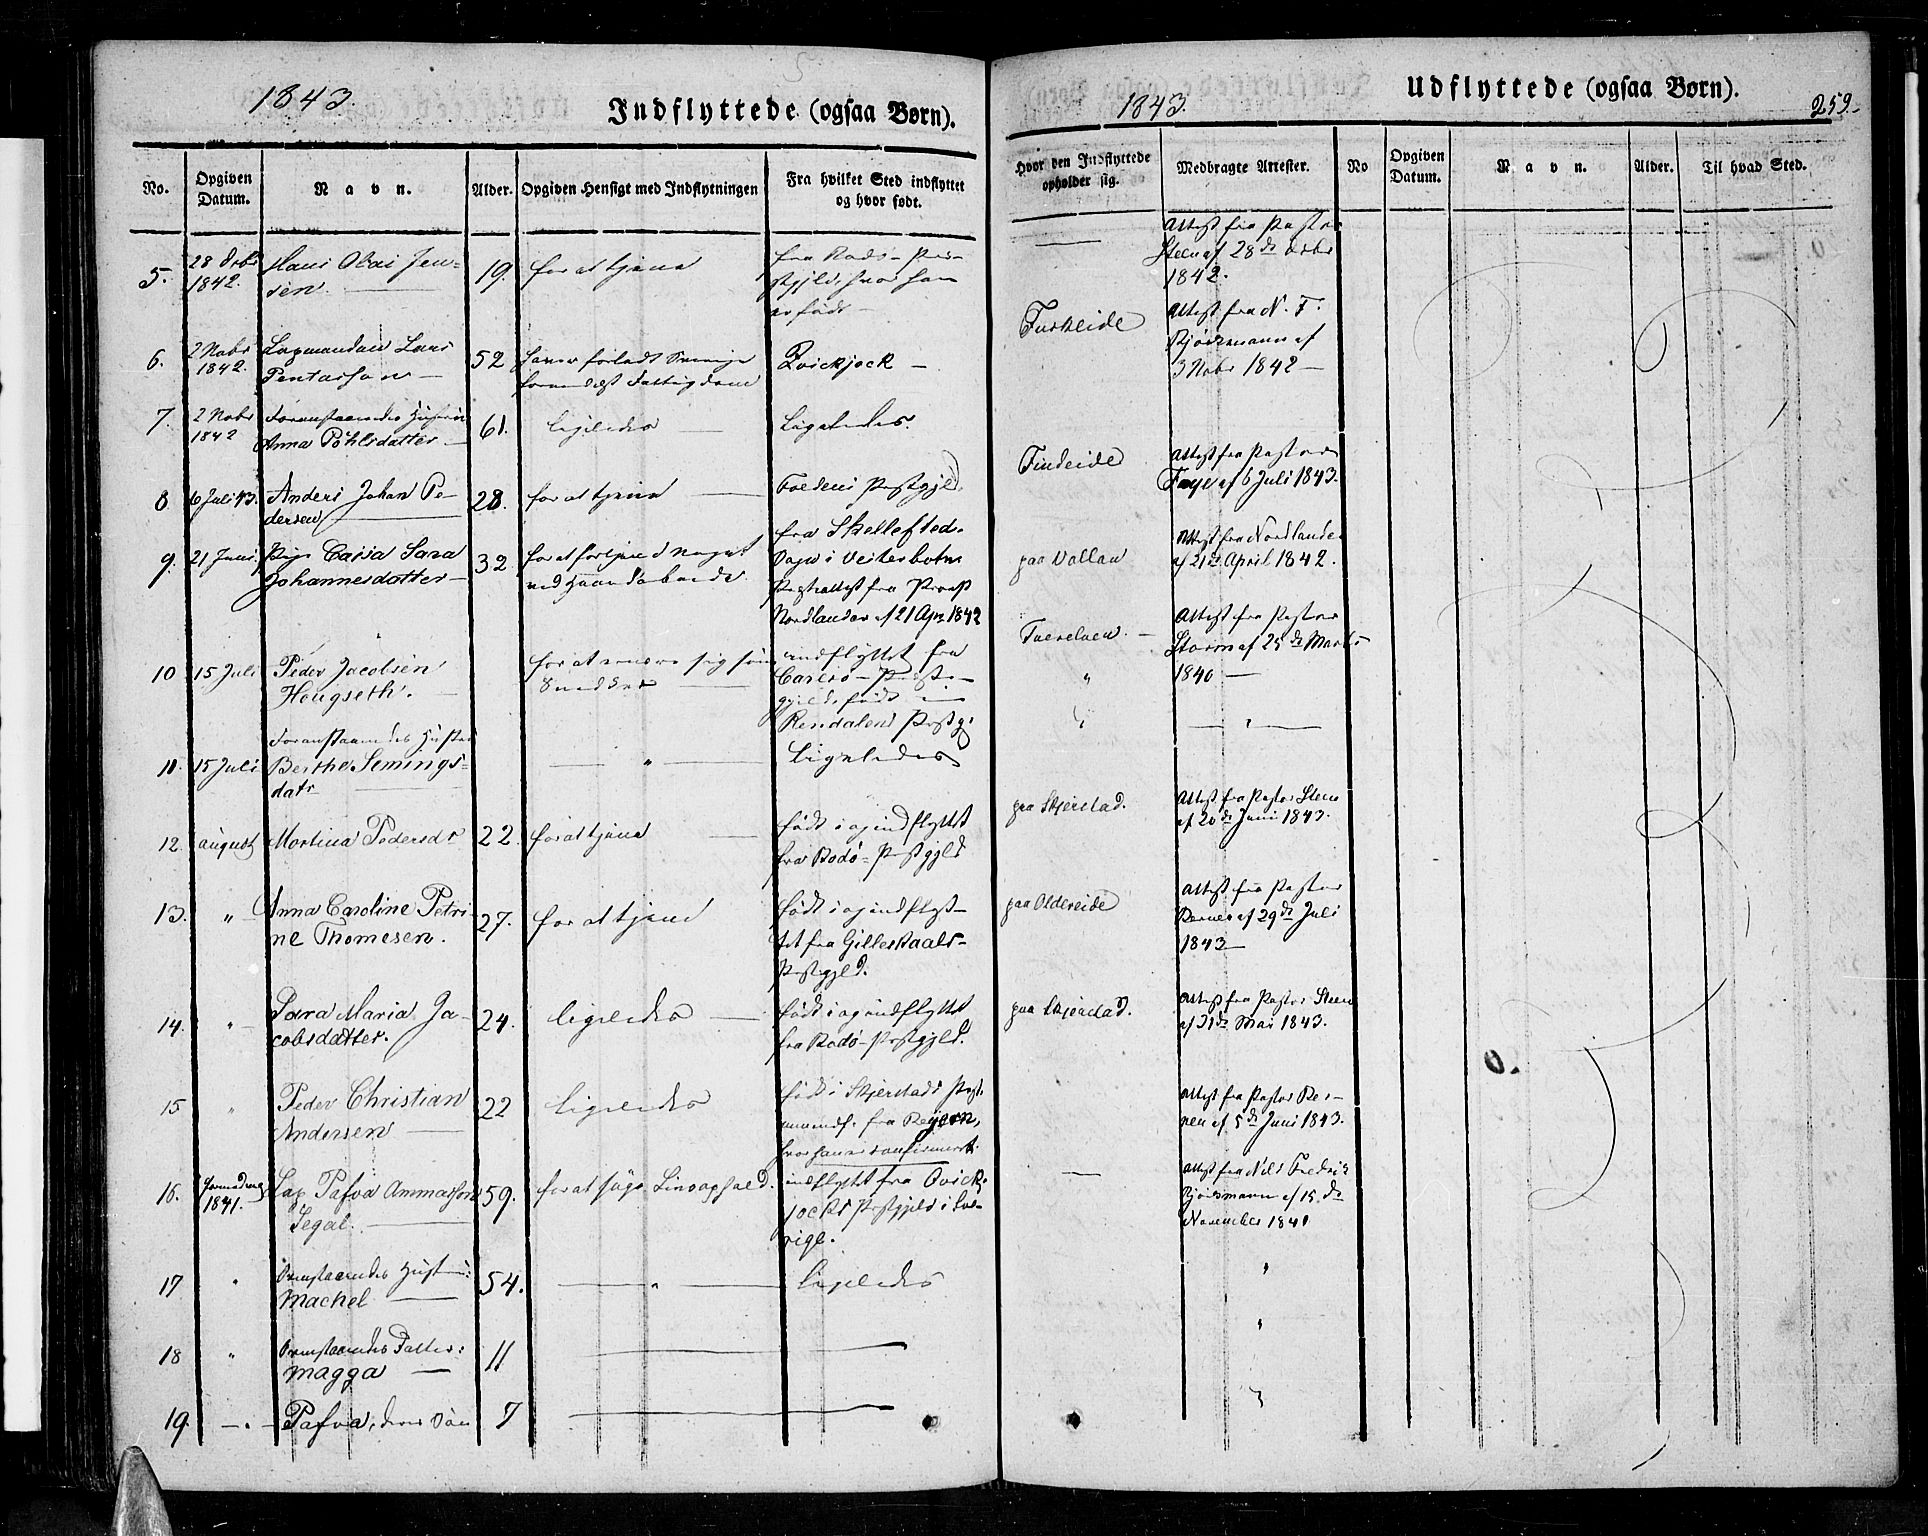 1843.
Indflyttede (ogsaa Børn).
No.
Opgiven Datum.
Navn.
Alder.
Opgiven Hensigt med Indflytningen
Fra hvilket Sted indflyttet og hvor født.
5.
28 Octbr
1842.
Hans Olai Jen-
sen.
19.
for at tjene
fra Bodø-Præ-
stgjeld, hvor han
er født
6.
2 Novbr
1842.
Lapmanden Lars
Pentasson
52
Sverige
formedelst Fattigdom
Qvickjock
7.
2 Novbr
1842
Foranstaaendes Hustru
Anna Pöhlsdatter
61.
ligeledes
Ligeledes
8.
6 Juli 43.
Anders Johan Pe-
dersen
28.
for at tjene
Foldens Præstgjeld
9.
21 Juni
Pige Caisa Sara
Johannesdatter
32
for at fortjene noget
ved Haandarbeide
fra Skellefted-
Sogn i Vesterbotn
Præsteattest fra Provst
Nordlander af 21 Apr 1842
10
15 Juli
Peder Jacobsen
Hougseth.
for at ernære sig som
Snedker
indflyttet fra
Præste-
gjeld, født i
Rendalens Præstgj
11.
15 Juli
Foranstaaendes Hustru
Berthe Semings-
datr
"
Ligeledes
12.
august
Martina Pedersdr
22.
for at tjene
født i og indflyttet
fra Bodø-Præstgjeld
13.
"
Anna Caroline Petri-
ne Thomesen.
27.
for at tjene
født i og indflyt-
tet fra Gilleskaals-
Præstegjeld.
14.
"
Sara Maria Ja-
cobsdatter.
24.
ligeledes
født i og indflyttet
fra Bodø-Præstgjeld.
15
"
Peder Christian
Andersen
22
ligeledes
født i Skjerstads Præst.
fra
hvor han er confirmeret.
16.
1841.
Lap Pafva Ammasson
Segal.
59.
for at søge Livsophold.
indflyttet fra Qvick-
jocks Præstgjeld i Sve-
rige.
17
"
Ovenstaaendes Hustru:
Machel
54.
"
ligeledes
18
"
Ovenstaaendes Datter:
Magga
11
19
"
Pafva, deres Søn
7
1843.
Udflyttede (ogsaa Børn).
259.
Hvor den Indflyttede opholder sig.
Medbragte Attester.
No
Opgiven Datum.
Navn.
Alder.
Til hvad Sted.
Attest fra Pastor
Steen af 28de Octbr
1842.
Fuskeide
Attest fra N. F.
Björkmann af
3 Novbr 1842
Findeide
Attest fra Pastor
Faye af 6 Juli 1843.
paa Vallan
Attest fra Nordlander
af 21de April 1842.
Tverelven.
Attest fra Pastor
Storm af 25de Marts
1840
"
"
"
paa Skjerstad.
Attest fra Pastor Steen
af 20de Juni 1843.
paa Oldereide
Attest fra Pastor
af 29de Juli
1843
paa Skjerstad.
Attest fra Pastor Steen
af 31de Mai 1843.
Attest fra Pastor
af 5de Juni 1843.
Attest fra Nils Fredrik
Björkmann af 15de
November 1841
"
"
"
0.